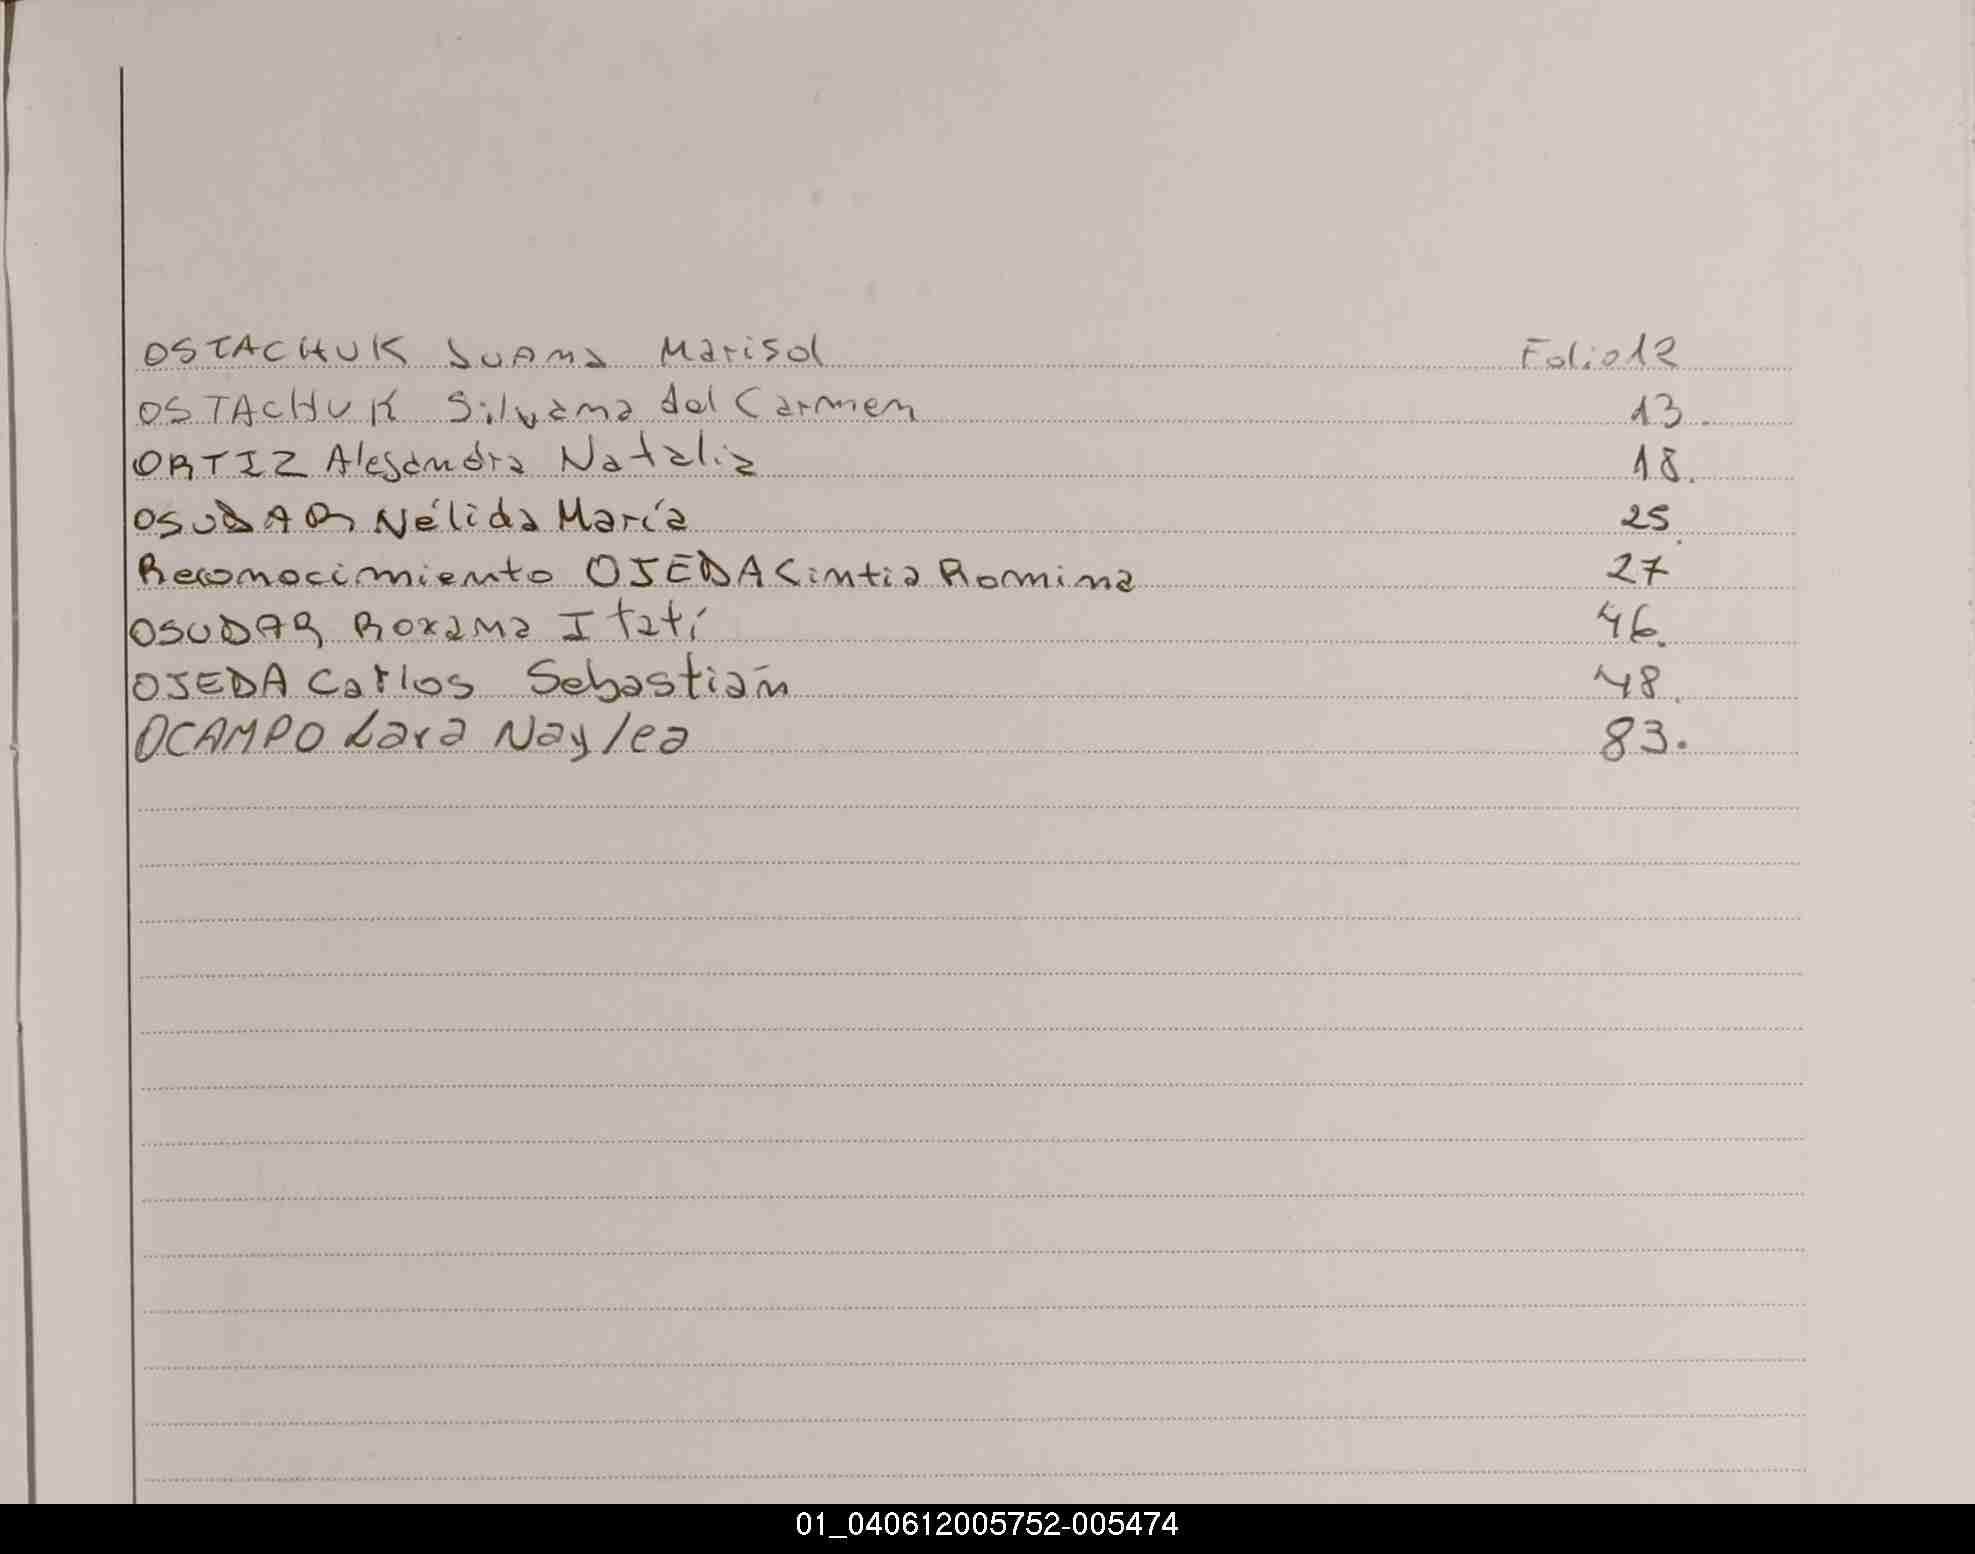 OSTACHUK Juana Marisol Folio 12
OSTACHUK Silvana del Carmen 13.
ORTIZ Alejandra Natalia 18.
OSUDAR Nélida María 25.
Reconocimiento OJEDA Cintia Romina 27
OSUDAR Roxana Itatí 46.
OJEDA Carlos Sebastián 48.
OCAMPO Lara Naylea 83.
01_040612005752-005474